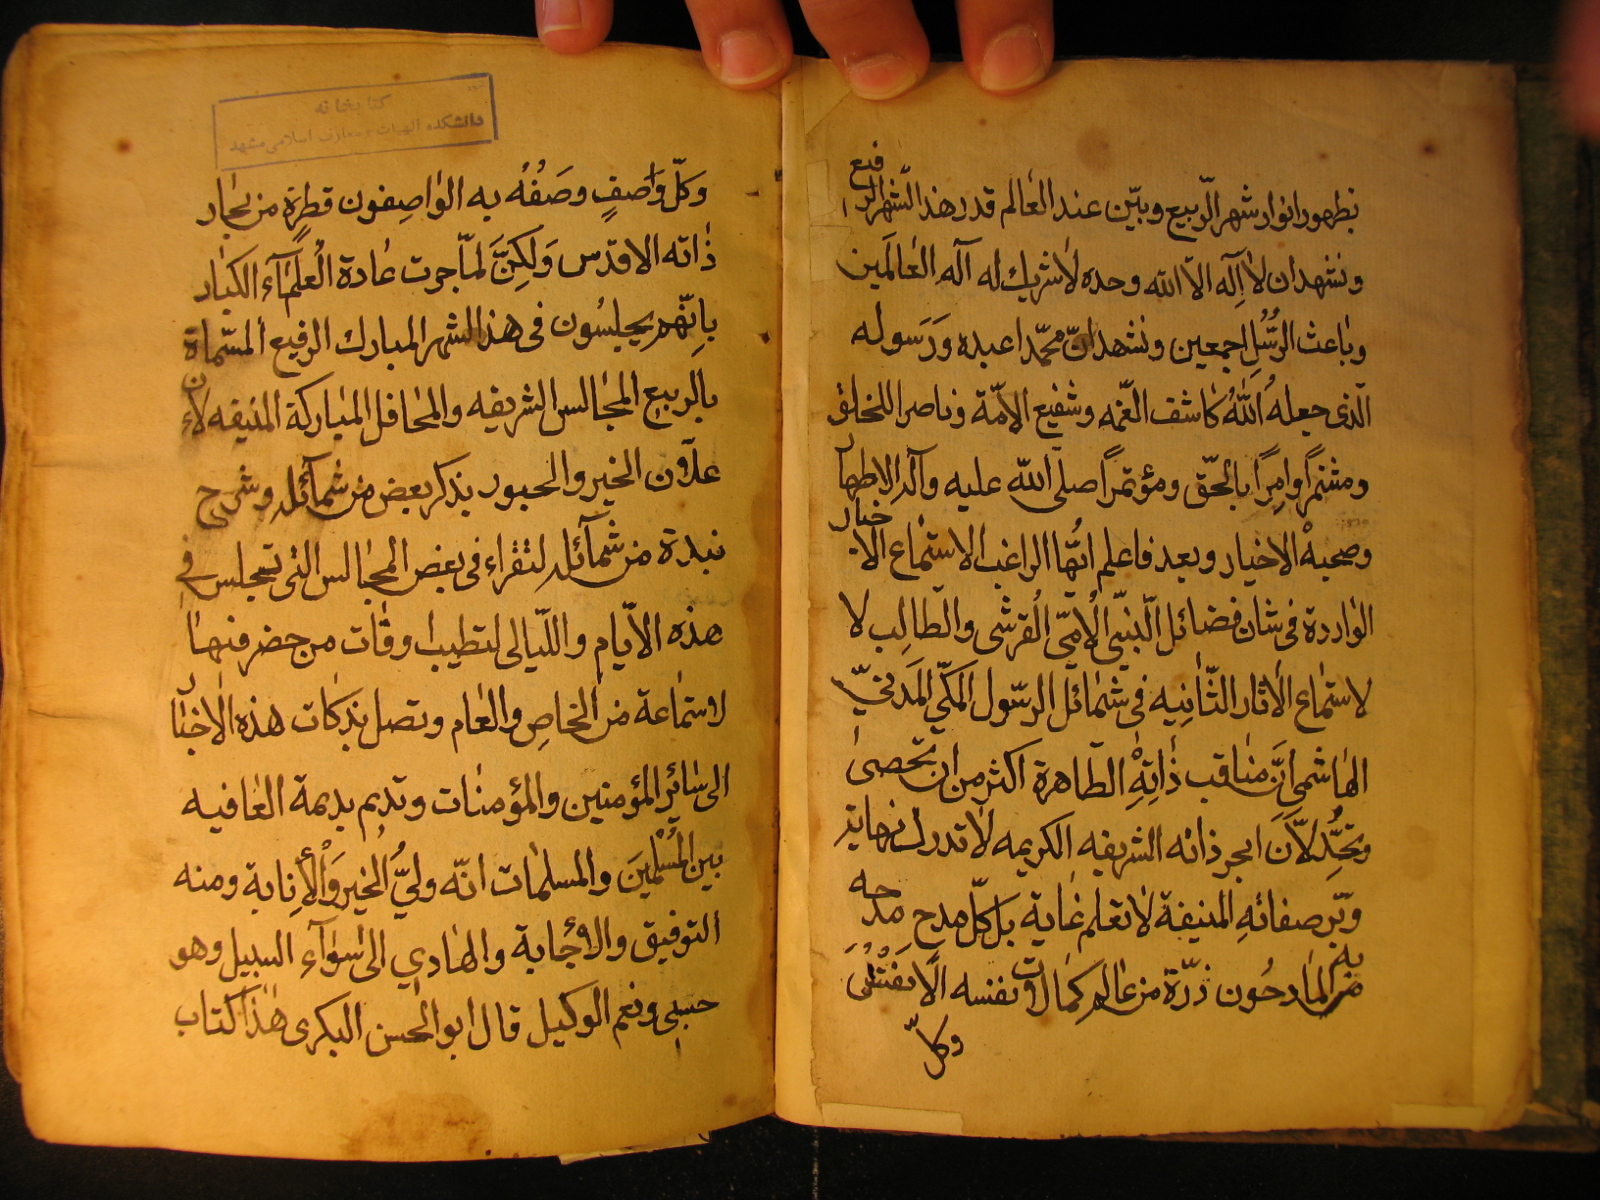 بظهور انوار شهر الرّبيع وبيّن عند العٰالم قدر هذا الشّهر الرفيع
ونشهد ان لٰا اِلٰه الّا اللّٰه وحده لٰا شريك له اله العٰالَمين
وبٰاعث الرُّسُلِ اجمعين ونشهد انّ محمّدا عبده وَرَسوله
الّذى جعلهُ اللّٰهُ كاشف الغمّه وشفيع الامّة وناصرا للخلق
وآمِرًا بالحّق ومؤتمرًا صلى اللّٰه عليه وآله الاطهار
وصحبهْ الاخيار وبعد فاعلم ايّها الراغب الاستمٰاع الاخبار
الوٰاردة فى شان فضٰائل النّبىّ الْامىّ القرشى والطّالِب لا
لاستمٰاع الاثار الثّانِيه فى شمٰائل الرسّول المكّي المَدنىّ
الهٰاشمى انّ منٰاقب ذٰاتِهِْ الطاهرة اكثر من ان تحصىٰ
وتحَدُّ لانّ ابحر ذاته الشريفه الكريمه لٰا تدرك نهاية
وبّر صفاتهِ المنيفة لٰا تعلم غاية بل كلّ مدح مدحه
به المٰادحُون ذرّة من عٰالم كمالات نفسه
وكلّ
وكلّ وٰاصفٍ وصَفُهُ به الوٰاصِفون قطرة من بحٰار
ذٰاته الاقدس وَلكِنَّ لمّا جرت عٰادة العُلَمٰآء الكبٰار
بِانّهم يجلسُون فى هذا الشهر المبارك الرفيع المسّماة
بالربيع المجٰالس الشريفه والمحٰافل المبٰاركة المنيفه لان
علٰان الخير والحبور بذكر بعض من شمآئله وشرح
نبذة من شمآئله لتقراء فى بعض المجٰالس التى تجلس فى
هذه الاّيام واللّيالى لتطيب اوقٰات من حضر فيهٰا
لاستمٰاعة من الخاصِ والعٰام وتصل بركات هذه الاخبٰار
الى سٰائِر المؤمنين والمؤمنات وتديم بديمة العٰافيه
بين المُسْلمِينَ والمسلمٰات انّه وليُّ الخير وَالْأِنابة ومنه
التوفيق والاجٰابة والهٰادي الى سَوٰآءِ السبيل وهو
حسبى ونعم الوكيل قال ابو الحسن البكرى هٰذا كتاب
كتابخانه
دانشكده الهيات و معارف اسلامى مشهد